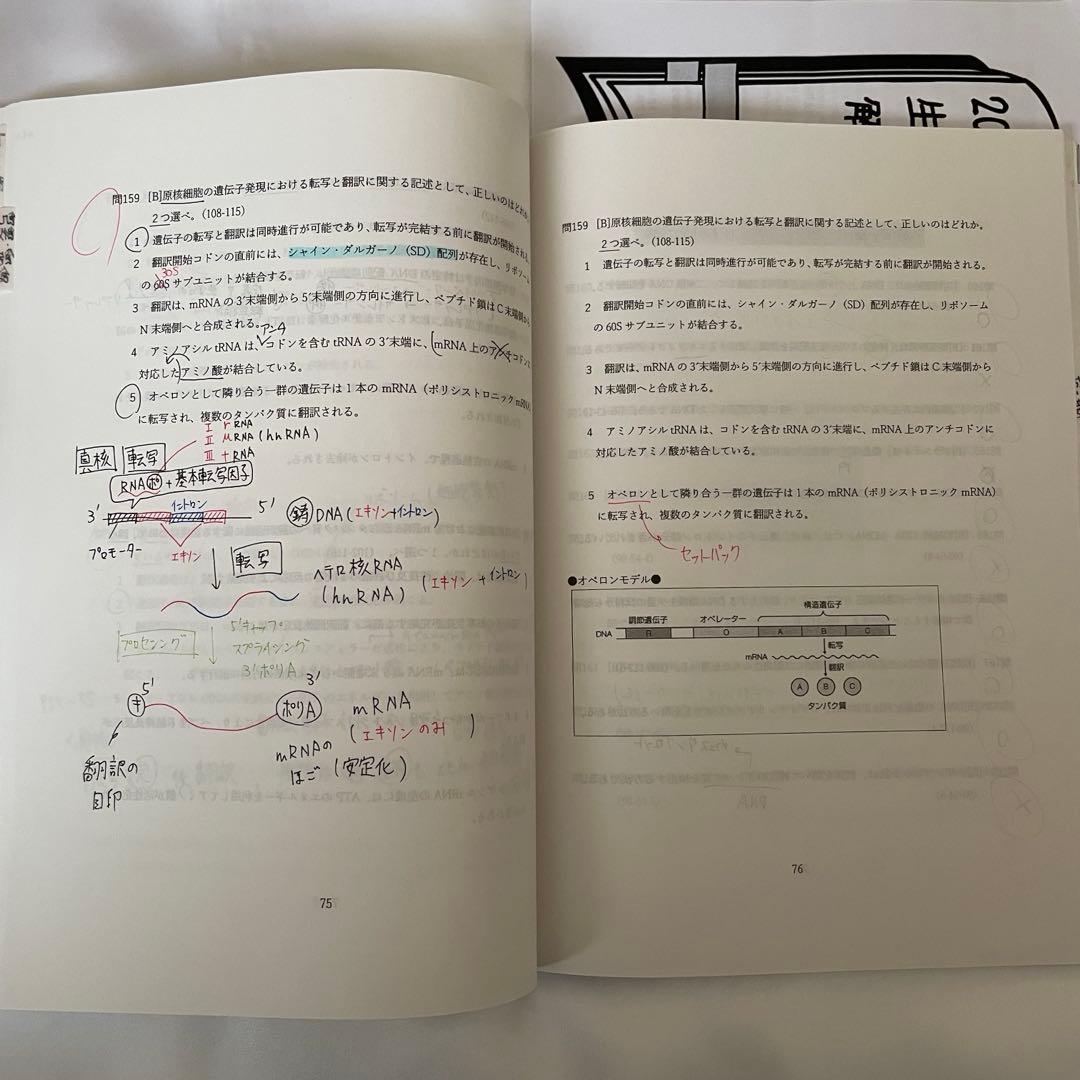 問159 [B]原核細胞の遺伝子発現における転写と翻訳に関する記述として、正しいのはどれか。
2つ選べ。(108-115)
1 遺伝子の転写と翻訳は同時進行が可能であり、転写が完結する前に翻訳が開始され
2 翻訳開始コドンの直前には、シャイン・ダルガーノ（SD）配列が存在し、リボソーム
30S
の 60S サブユニットが結合する。
3 翻訳は、mRNA の 3′末端側から 5′末端側の方向に進行し、ペプチド鎖は C 末端側から
N 末端側へと合成される。
アンチ
4 アミノアシル tRNA は、コドンを含む tRNA の 3′末端に、mRNA 上のアンチコドンに
対応したアミノ酸が結合している。
5 オペロンとして隣り合う一群の遺伝子は 1 本の mRNA（ポリシストロニック mRNA
に転写され、複数のタンパク質に翻訳される。
I rRNA
II mRNA(hnRNA)
III tRNA
真核 転写
RNAポ+基本転写因子
イントロン
3′ 5′ 鋳 DNA(エキソン+イントロン)
プロモーター エキソン
転写
ヘテロ核RNA
(hnRNA) (エキソン+イントロン)
プロセシング
5′キャップ
スプライシング
3′ポリA
5′ 3′
キ ポリA mRNA
(エキソンのみ)
翻訳の
目印
mRNAの
ほご(安定化)
75
20
生
解
問159 [B]原核細胞の遺伝子発現における転写と翻訳に関する記述として、正しいのはどれか。
2つ選べ。(108-115)
1 遺伝子の転写と翻訳は同時進行が可能であり、転写が完結する前に翻訳が開始される。
2 翻訳開始コドンの直前には、シャイン・ダルガーノ（SD）配列が存在し、リボソーム
の 60S サブユニットが結合する。
3 翻訳は、mRNA の 3′末端側から 5′末端側の方向に進行し、ペプチド鎖は C 末端側から
N 末端側へと合成される。
4 アミノアシル tRNA は、コドンを含む tRNA の 3′末端に、mRNA 上のアンチコドンに
対応したアミノ酸が結合している。
5 オペロンとして隣り合う一群の遺伝子は 1 本の mRNA（ポリシストロニック mRNA）
に転写され、複数のタンパク質に翻訳される。
セットパック
●オペロンモデル●
構造遺伝子
調節遺伝子 オペレーター
DNA R O A B C
転写
mRNA
翻訳
A B C
タンパク質
76